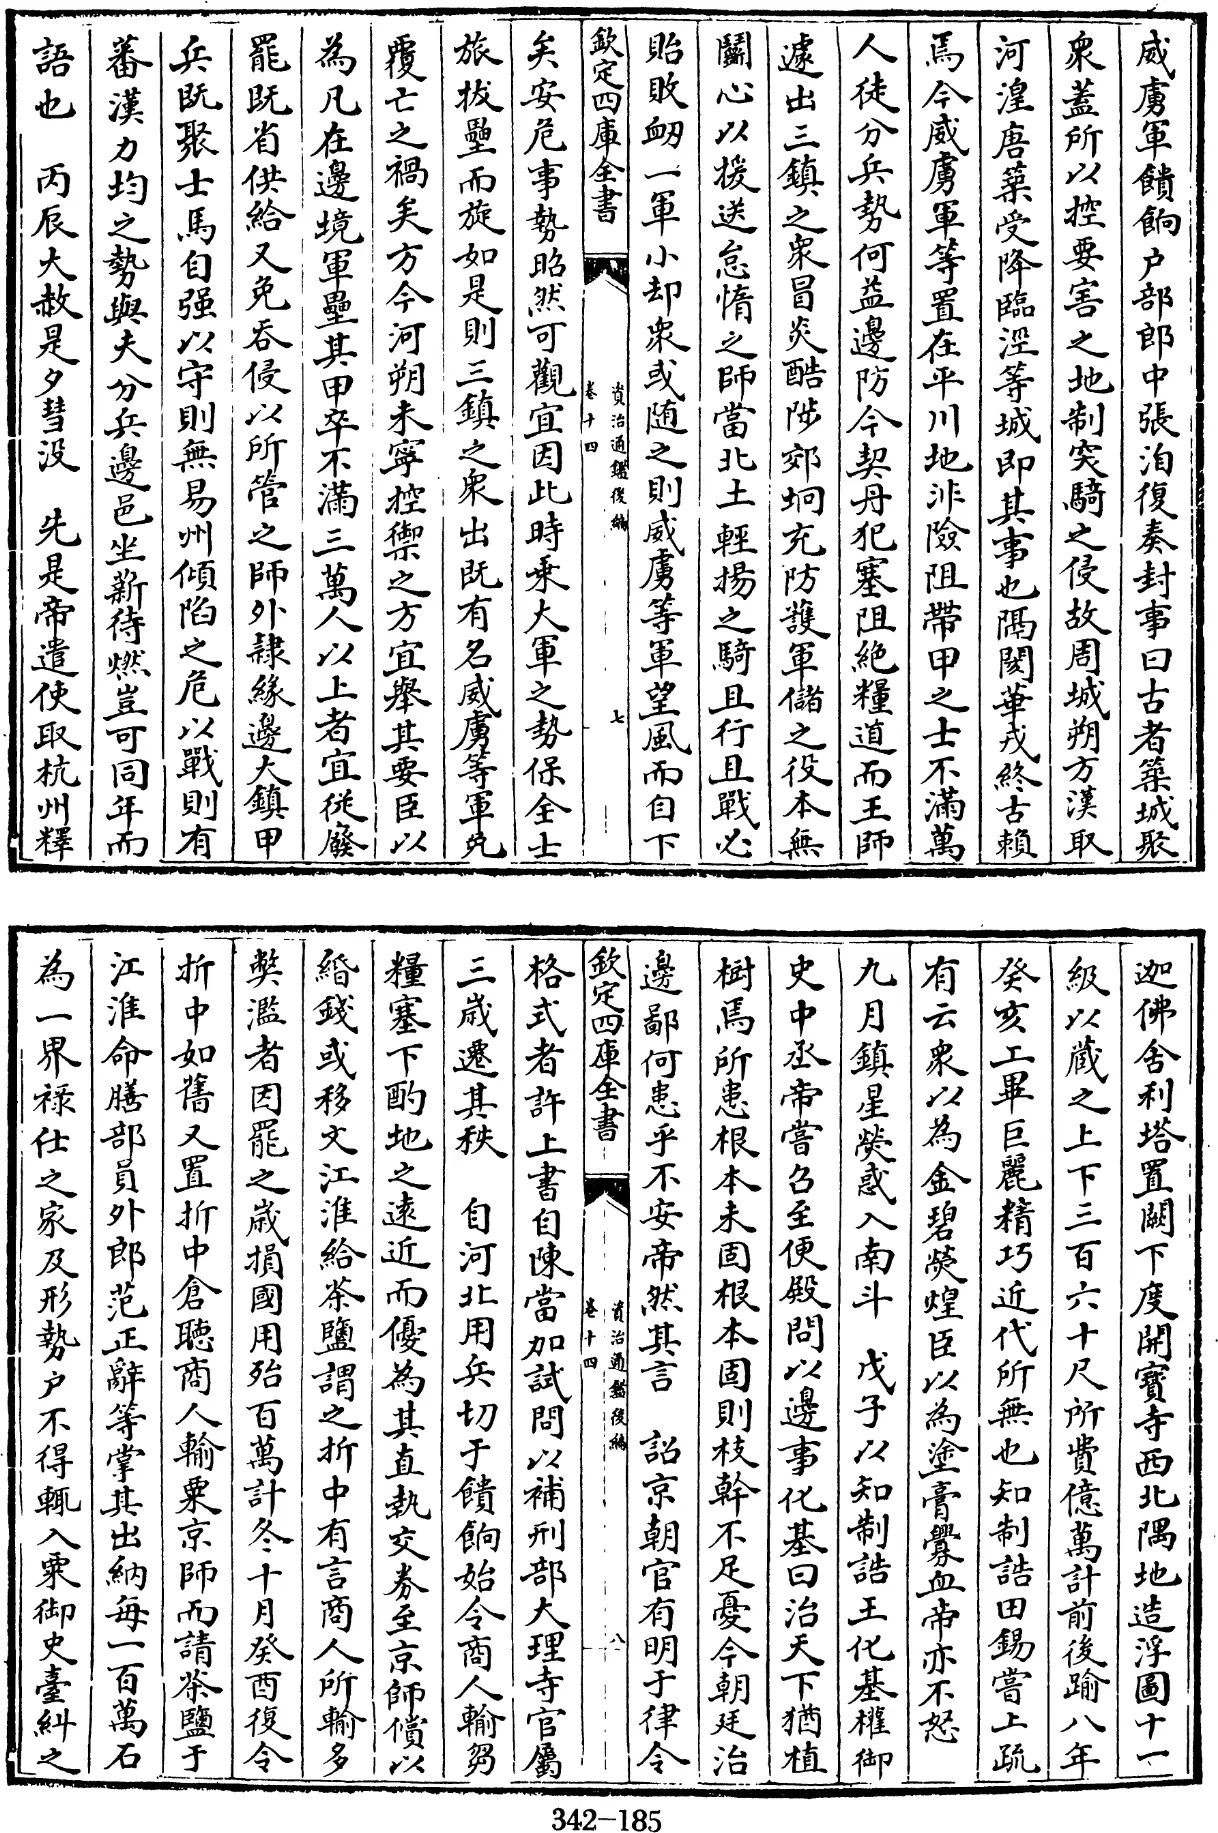 威虜軍饋餉户部郎中張洎復奏封事曰古者築城聚
衆蓋所以控要害之地制突騎之侵故周城朔方漢取
河湟唐築受降臨涇等城即其事也隔閡華戎終古賴
焉今威虜軍等置在平川地非險阻帶甲之士不滿萬
人徒分兵勢何益邊防今契丹犯塞阻絶糧道而王師
遽出三鎮之衆冒炎酷陟郊坰充防護軍儲之役本無
鬭心以援送怠惰之師當北土輕揚之騎且行且戰必
貽敗衂一軍小却衆或随之則威虜等軍望風而自下
欽定四庫全書
資治通鑑後編
卷十四
七
矣安危事勢昭然可觀宜因此時乗大軍之勢保全士
旅拔壘而旋如是則三鎮之衆出既有名威虜等軍免
覆亡之禍矣方今河朔未寧控禦之方宜舉其要臣以
為凡在邊境軍壘其甲卒不滿三萬人以上者宜從廢
罷既省供給又免吞侵以所管之師外隷緣邊大鎮甲
兵既聚士馬自强以守則無易州傾陷之危以戰則有
蕃漢力均之勢與夫分兵邊邑坐薪待燃豈可同年而
語也 丙辰大赦是夕彗没 先是帝遣使取杭州釋
迦佛舍利塔置闕下度開寳寺西北隅地造浮圖十一
級以蔵之上下三百六十尺所費億萬計前後踰八年
癸亥工畢巨麗精巧近代所無也知制誥田錫嘗上疏
有云衆以為金碧熒煌臣以為塗膏釁血帝亦不怒
九月鎮星熒惑入南斗 戊子以知制誥王化基權御
史中丞帝嘗召至便殿問以邊事化基曰治天下猶植
樹焉所患根本未固根本固則枝幹不足憂今朝廷治
邊鄙何患乎不安帝然其言 詔京朝官有明于律令
欽定四庫全書
資治通鑑後編
卷十四
八
格式者許上書自陳當加試問以補刑部大理寺官屬
三歲遷其秩 自河北用兵切于饋餉始令商人輸芻
糧塞下酌地之逺近而優為其直執交券至京師償以
緡錢或移文江淮給茶鹽謂之折中有言商人所輸多
獘濫者因罷之歲損國用殆百萬計冬十月癸酉復令
折中如舊又置折中倉聴商人輸粟京師而請茶鹽于
江淮命膳部員外郎范正辭等掌其出納每一百萬石
為一界禄仕之家及形勢户不得輒入粟御史臺糾之
342-185